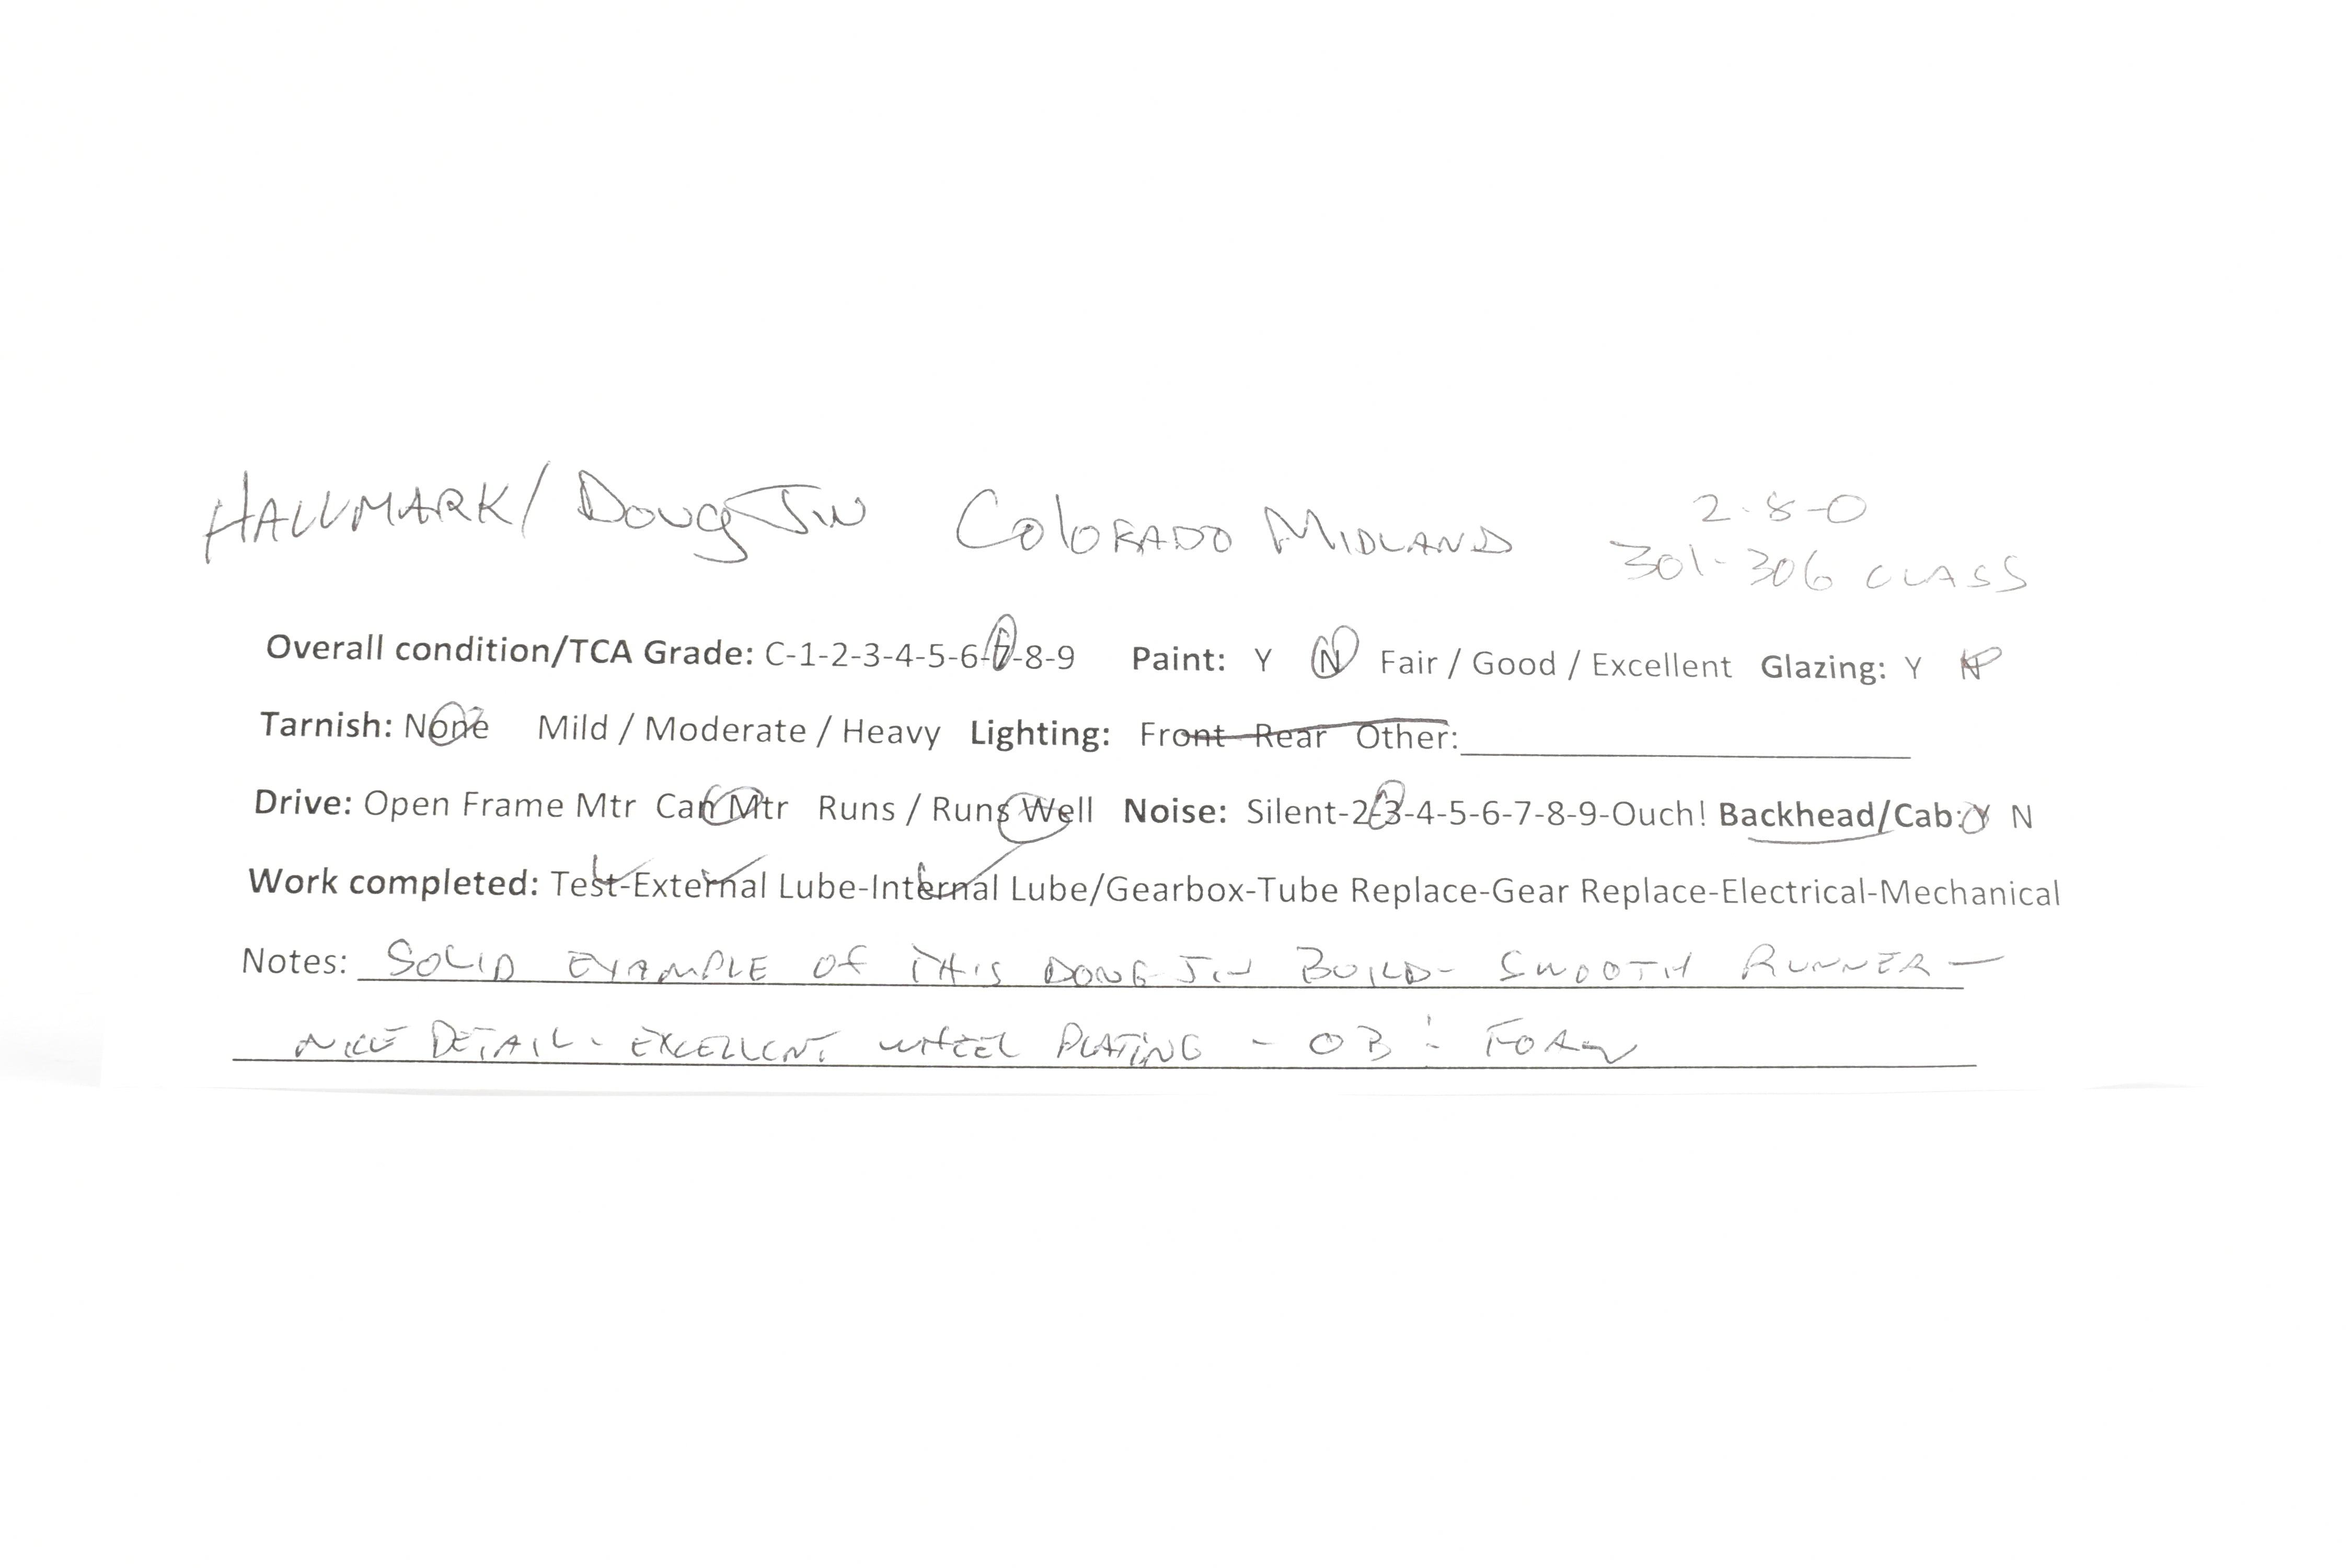 HALLMARK/ Doug Jin Colorado Midland 2-8-0
301-306 CLASS
Overall condition/TCA Grade: C-1-2-3-4-5-6-7-8-9 Paint: Y N Fair / Good / Excellent Glazing: Y N
Tarnish: None Mild / Moderate / Heavy Lighting: Front Rear Other:
Drive: Open Frame Mtr Can Mtr Runs / Runs Well Noise: Silent-2-3-4-5-6-7-8-9-Ouch! Backhead/Cab: Y N
Work completed: Test-External Lube-Internal Lube/Gearbox-Tube Replace-Gear Replace-Electrical-Mechanical
Notes: SOLID EXAMPLE OF THIS DONG JIN BUILD- SMOOTH RUNNER —
NICE DETAIL - EXCELLENT WHEEL PLATING - OB : FOAM